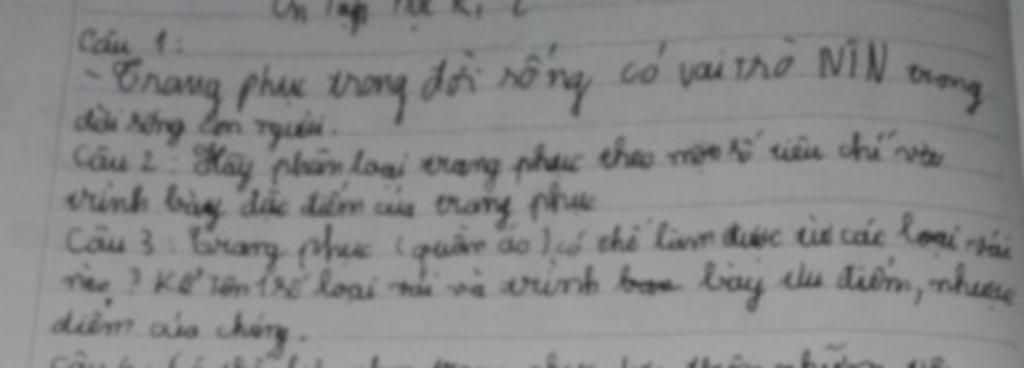 Ôn tập
Câu 1:
- Trang phục trong đời sống có vai trò NTN trong
đời sống con người.
Câu 2: Hãy phân loại trang phục theo một số tiêu chí và
trình bày đặc điểm của trang phục
Câu 3: Trang phục (quần áo) có thể làm được từ các loại vải
nào? Kể tên loại vải và trình bày ưu điểm, nhược
điểm của chúng.